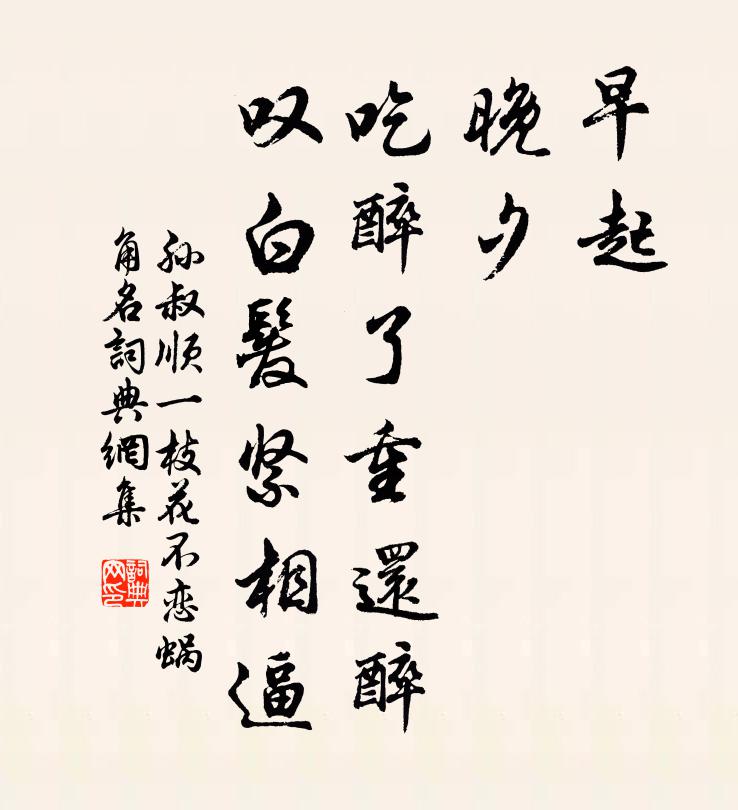 早起
晚夕
吃醉了重還醉
叹白髮紧相逼
孙叔順一枝花不恋蜗
角名詞典網集
詞典网印